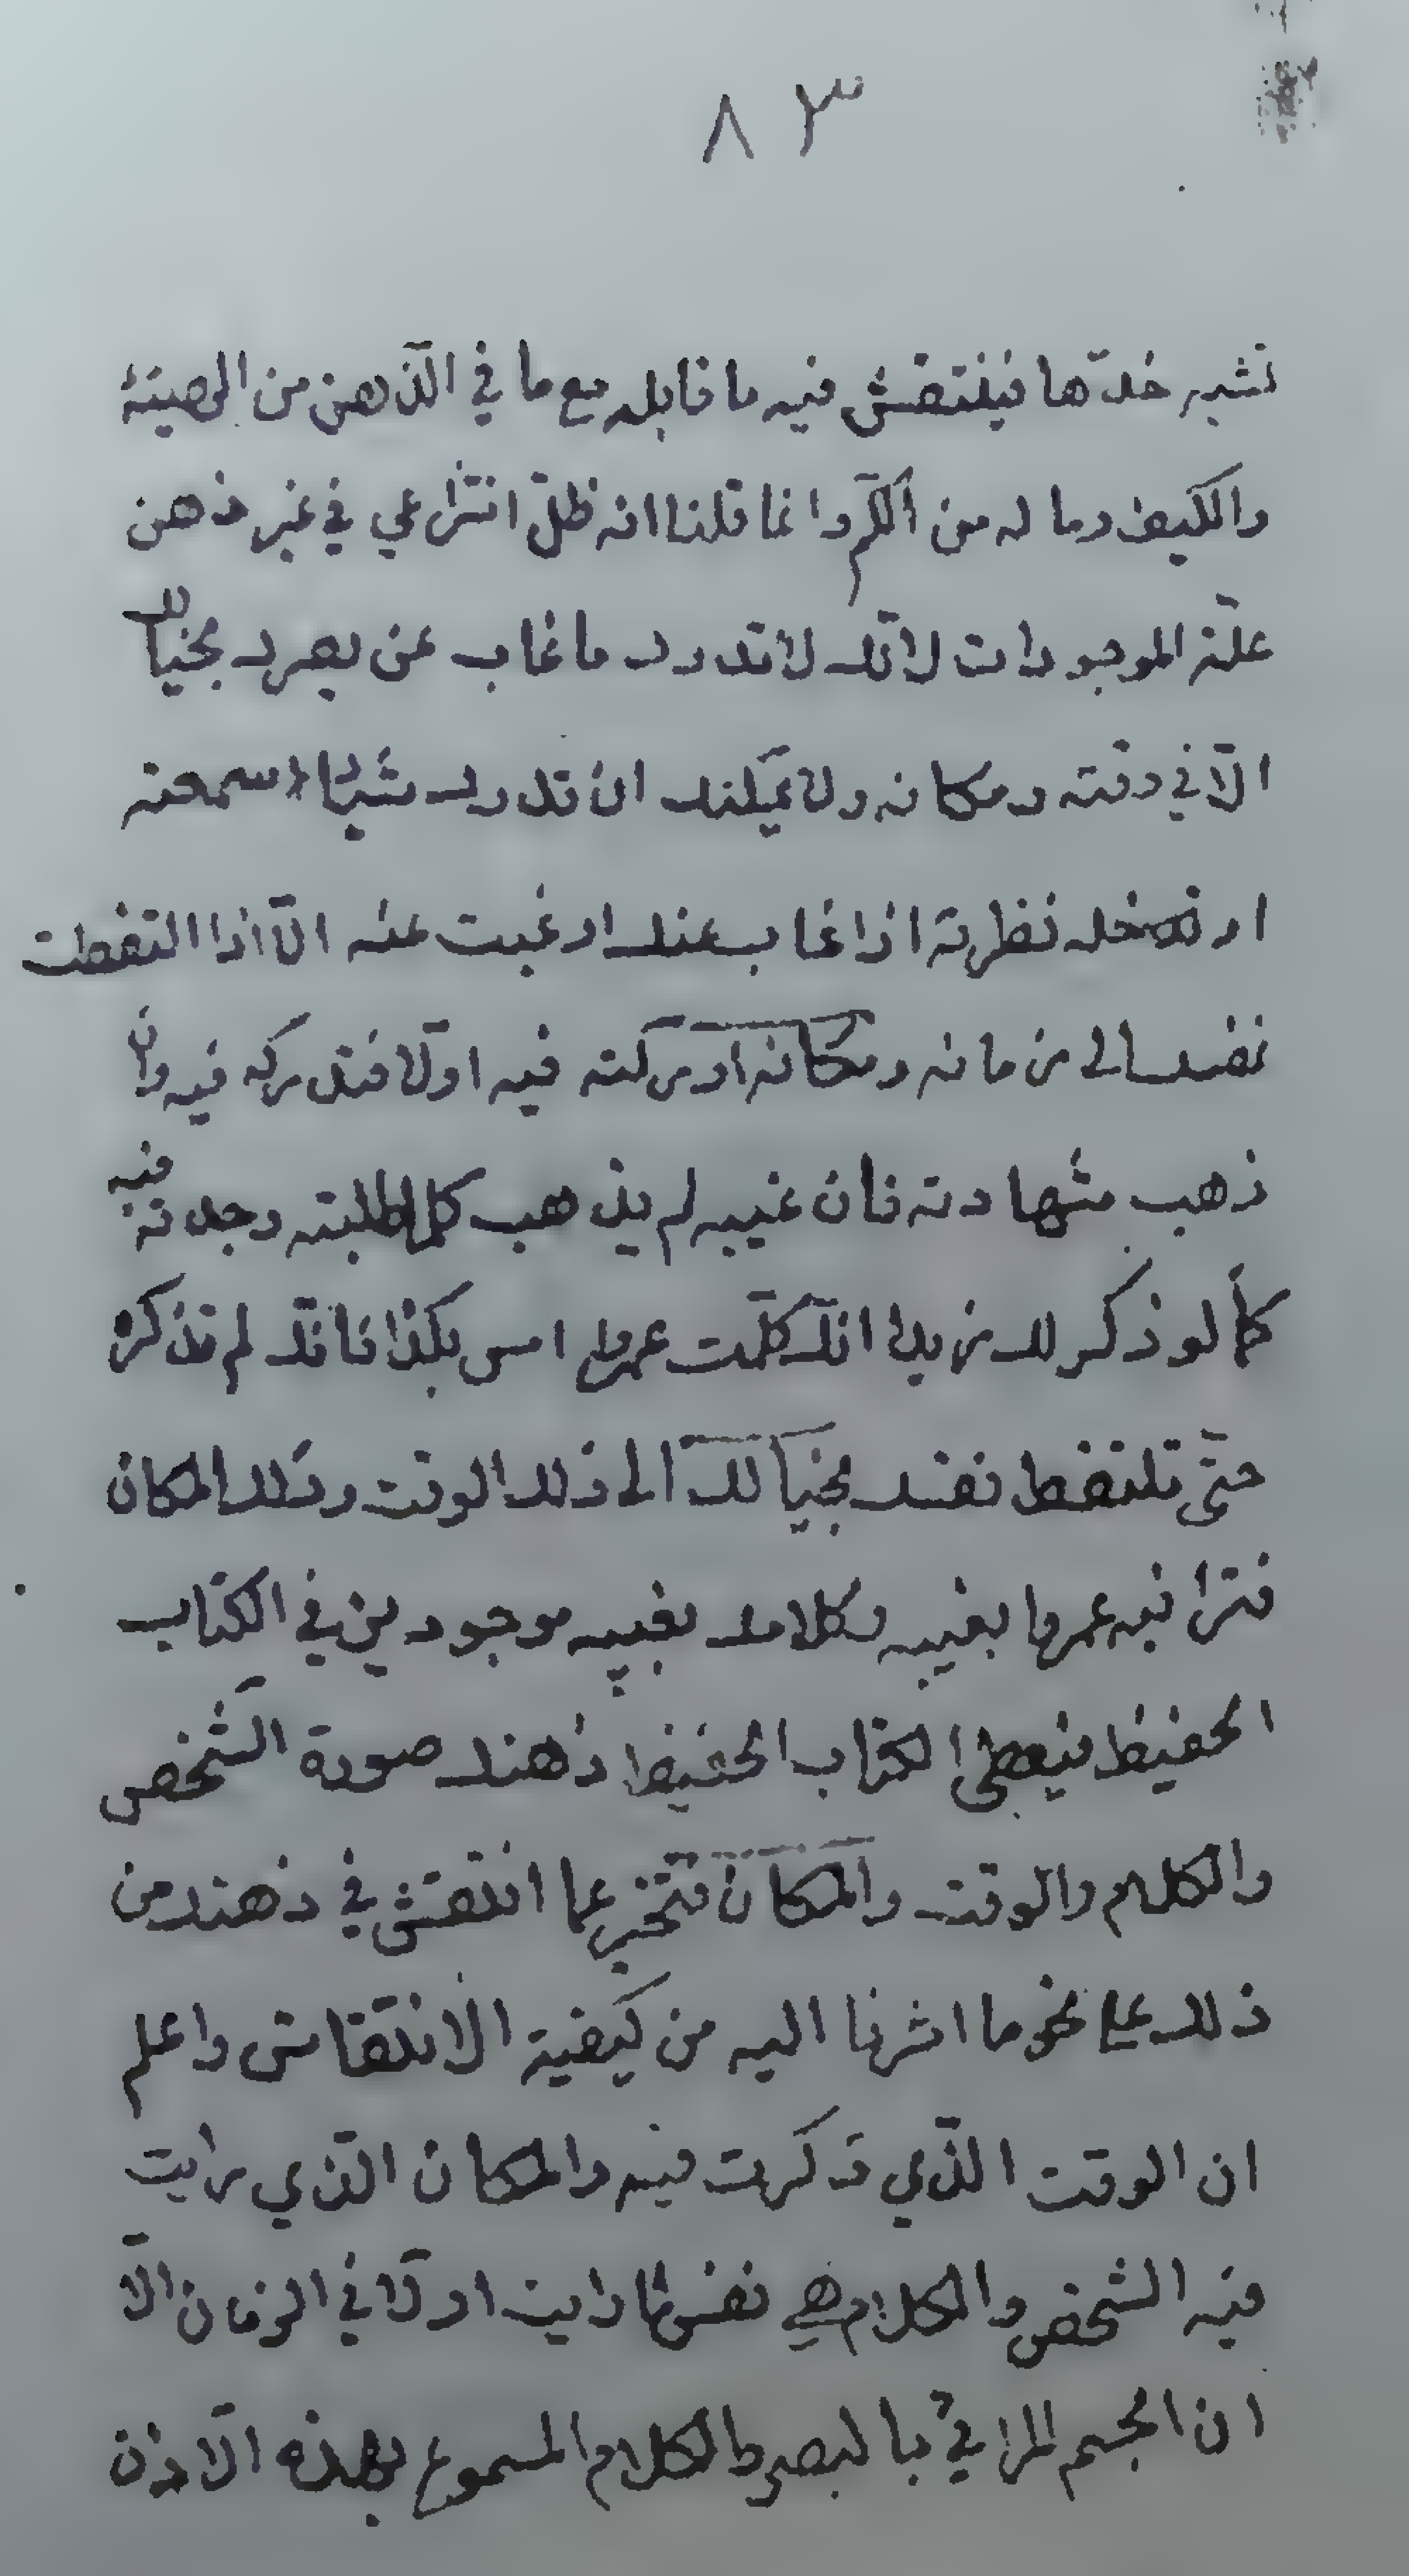 ٨٣
تشبه خدّها فينتقش فيه ما قابله مع ما في الذّهن من الهيئة
والكيف وما له من الكمّ وانما قلنا انه ظلّ انتزاعي في غير ذهن
علّة الموجودات لانّك لا تدرك ما غاب عن بصرك بخيالك
الّا في وقته ومكانه ولا يمكنك ان تدرك شيئا سمعته
او نظرته اذا غاب عنك او غبت عنه الّا اذا التفطت
نفسك الى زمانه ومكانه ادركته فيه اوّلا فتدركه فيه وان
ذهب شهادته فان غيبه لم يذهب كلما طلبته وجدته فيه
كما لو ذكر لك زيدا انّك كلّمت عمروا امس بكذا فانّك لم تذكره
حتّى تلتفط نفسك بخيالك الى ذلك الوقت وذلك المكان
فترا فيه عمروا بغيبه وكلامك بغيبه موجودين في الكتاب
الحفيظ فيعطي الكتاب الحفيظ ذهنك صورة الشّخص
والكلام والوقت والمكان فتخبر عما انتقش في ذهنك من
ذلك على نحو ما اشرنا اليه من كيفية الانتقاش واعلم
ان الوقت الّذي ذكرت فيه والمكان الّذي رايت
فيه الشخص والكلام هي نفس ما رايت اوّلا في الزمان الّا
ان الجسم المرائي بالبصر والكلام المسموع بهذه الآذان